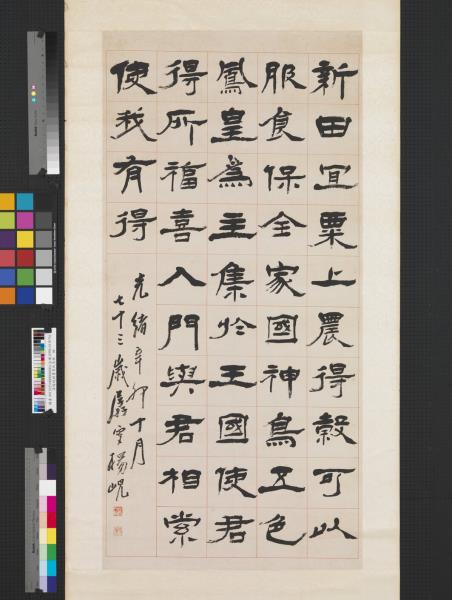 新田宜粟上農得穀可以
服食保全家國神鳥五色
鳳皇為主集於王國使君
得所福喜入門與君相索
使我有得
光緒辛卯十月
七十三歲藐叟楊峴